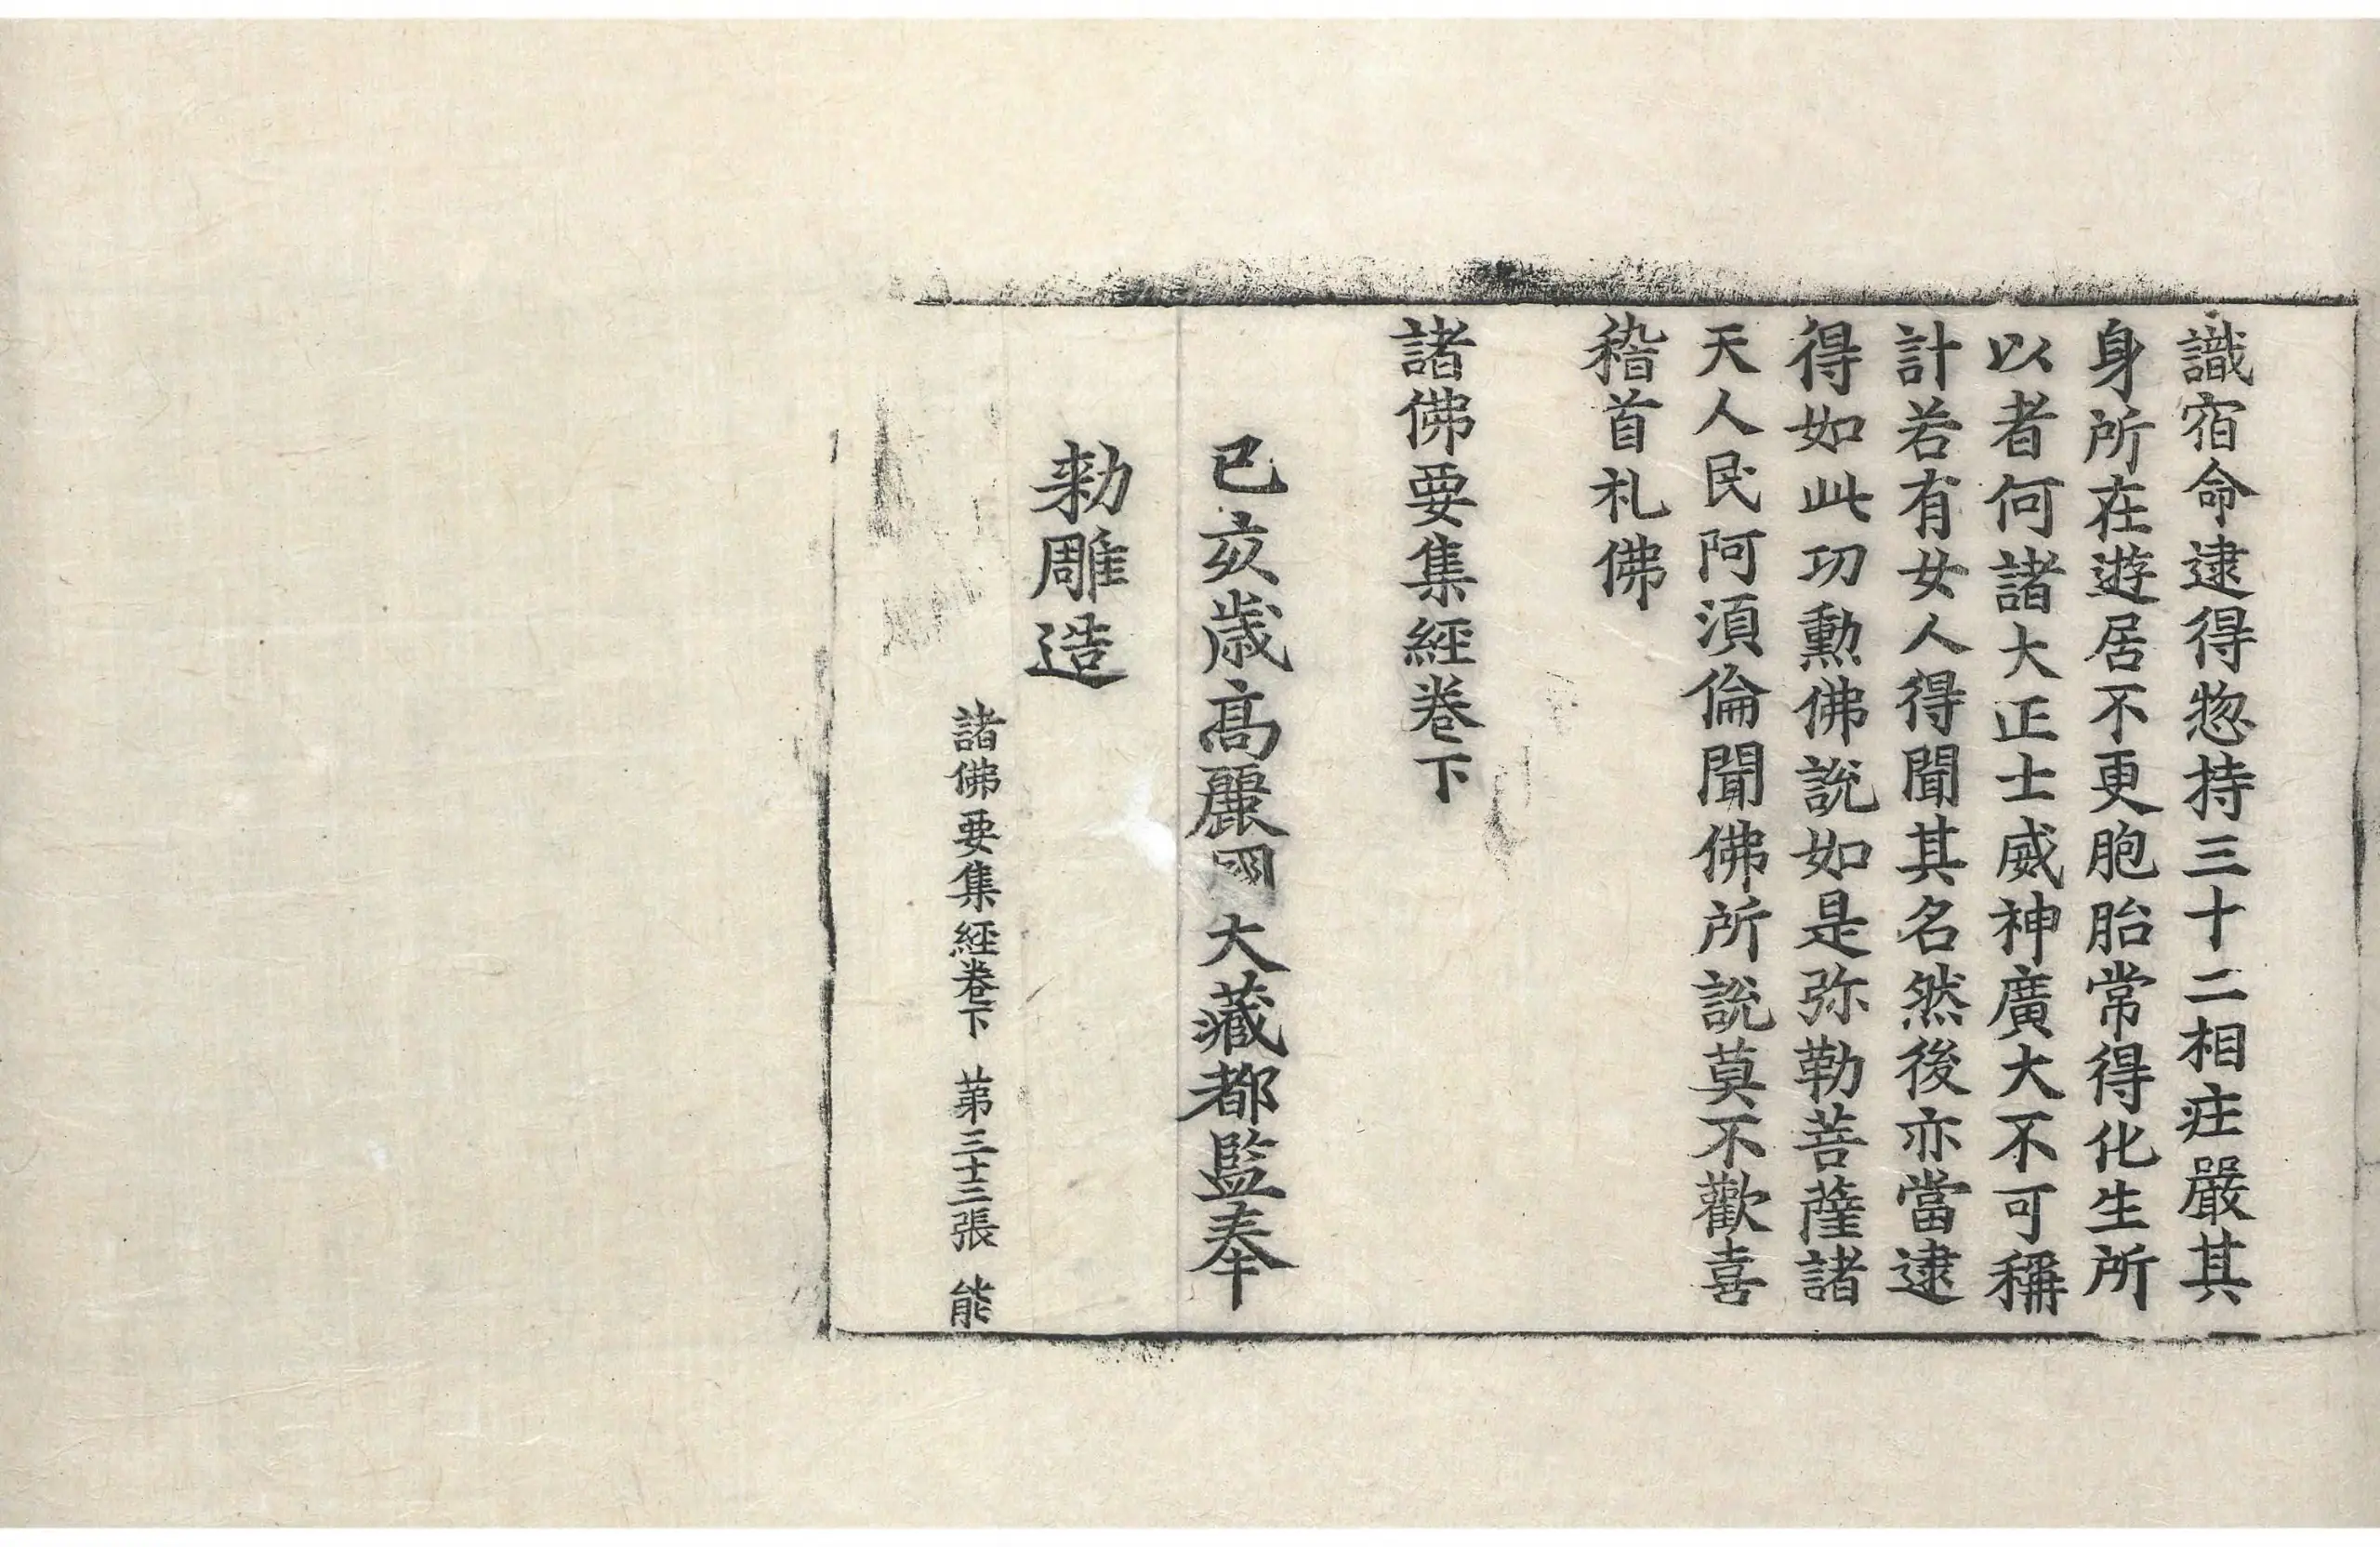 識宿命逮得惣持三十二相疘嚴其
身所在遊居不更胞胎常得化生所
以者何諸大正士威神廣大不可稱
計若有女人得聞其名然後亦當逮
得如此功勳佛說如是弥勒菩薩諸
天人民阿湏倫聞佛所說莫不歡喜
稽首礼佛
諸佛要集經卷下
己亥歲高麗國大藏都監奉
勅雕造
諸佛要集經卷下 苐三十二張 能